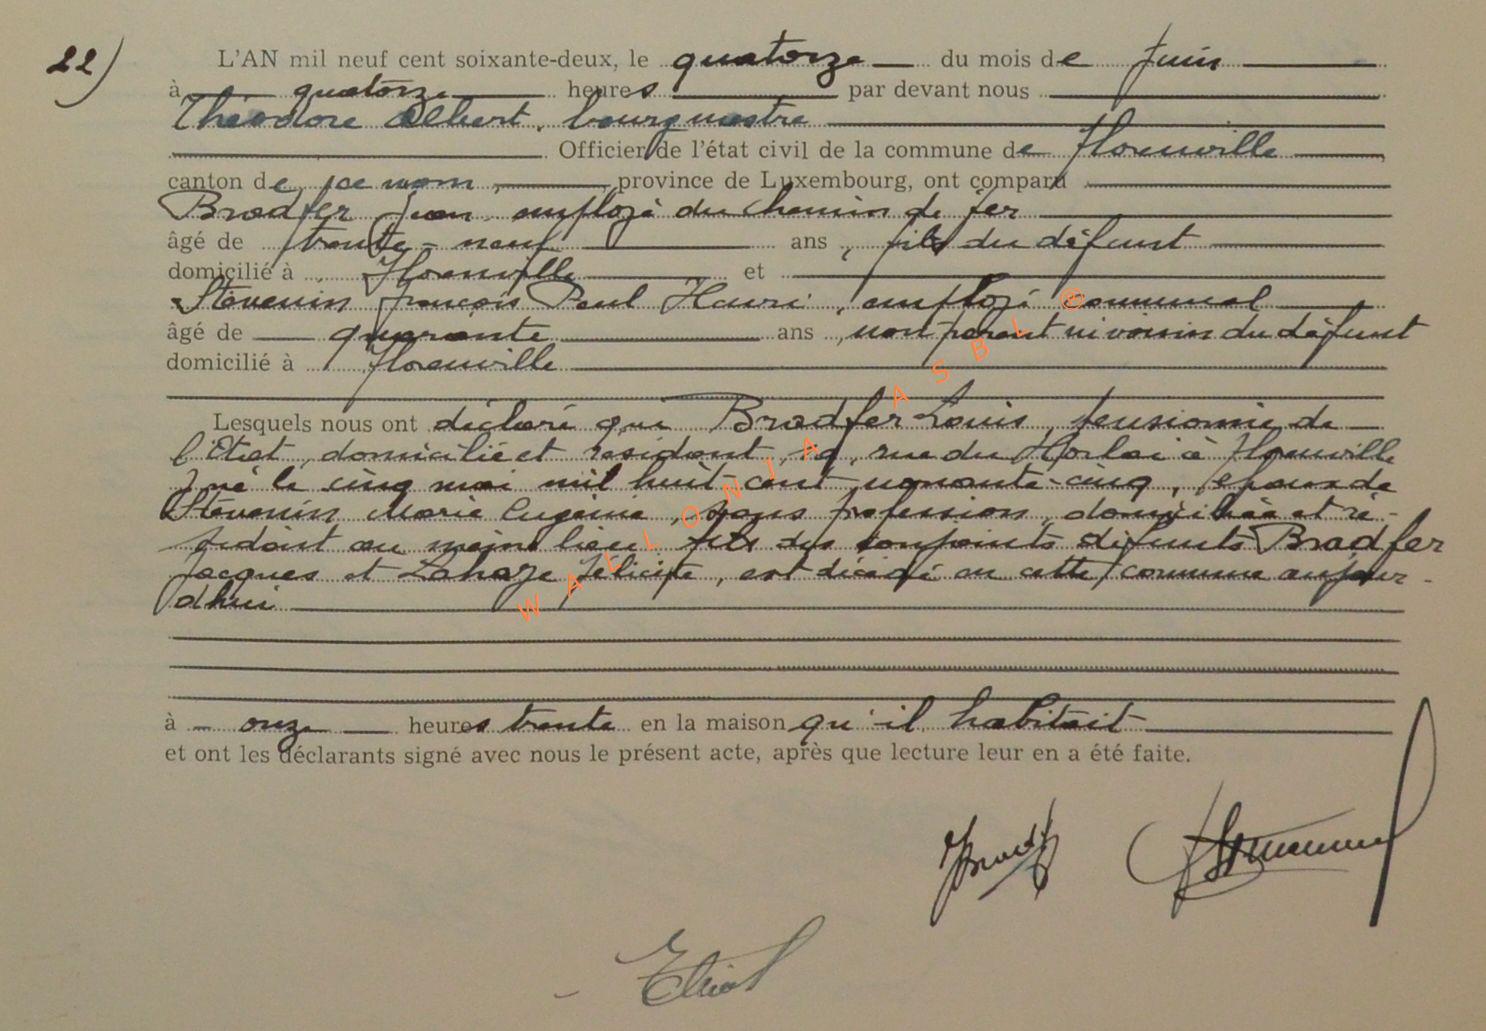 22)
L'AN mil neuf cent soixante-deux, le quatorze du mois de Juin
à quatorze heures par devant nous
Théodore Albert, bourgmestre
Officier de l'état civil de la commune de Florenville
canton de ce nom, province de Luxembourg, ont comparu
Bradfer Jean employé du chemin de fer
âgé de trente-neuf ans, fils du défunt
domicilié à Florenville et
Stévenin François Paul Henri, employé communal
âgé de quarante ans, non parent ni voisin du défunt
domicilié à Florenville
Lesquels nous ont déclaré que Bradfer Louis, pensionné de
l'Etat, domicilié et résidant, rue du à Florenville
né le cinq mai mil huit cent nonante-cinq, époux de
Stévenin Marie Eugénie, sans profession, domiciliée et ré-
sidant au même lieu fils des conjoints défunts Bradfer
Jacques et Lahaye Félicité, est décédé en cette commune aujour-
d'hui
à onze heures trente en la maison qu'il habitait
et ont les déclarants signé avec nous le présent acte, après que lecture leur en a été faite.
WALLONIA ASBL ®